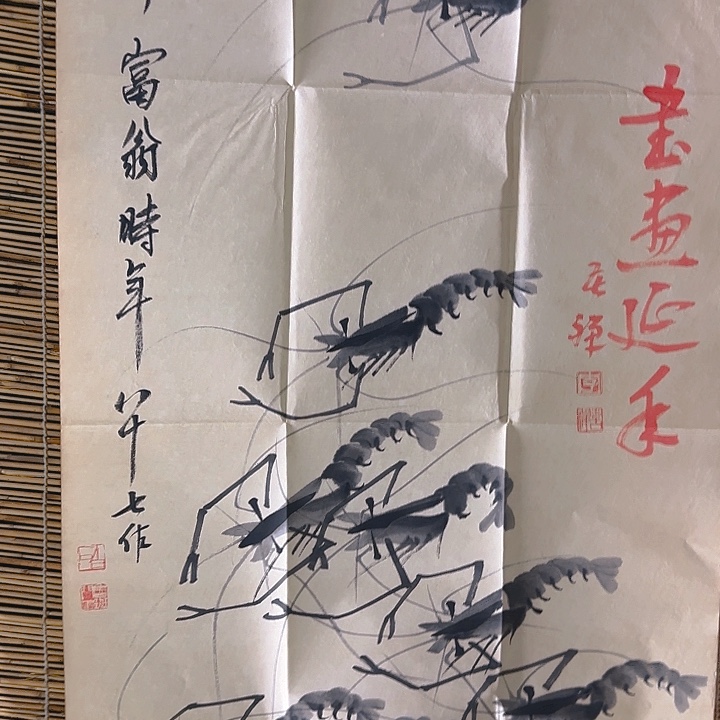 書畫延年
富翁時年八十七作